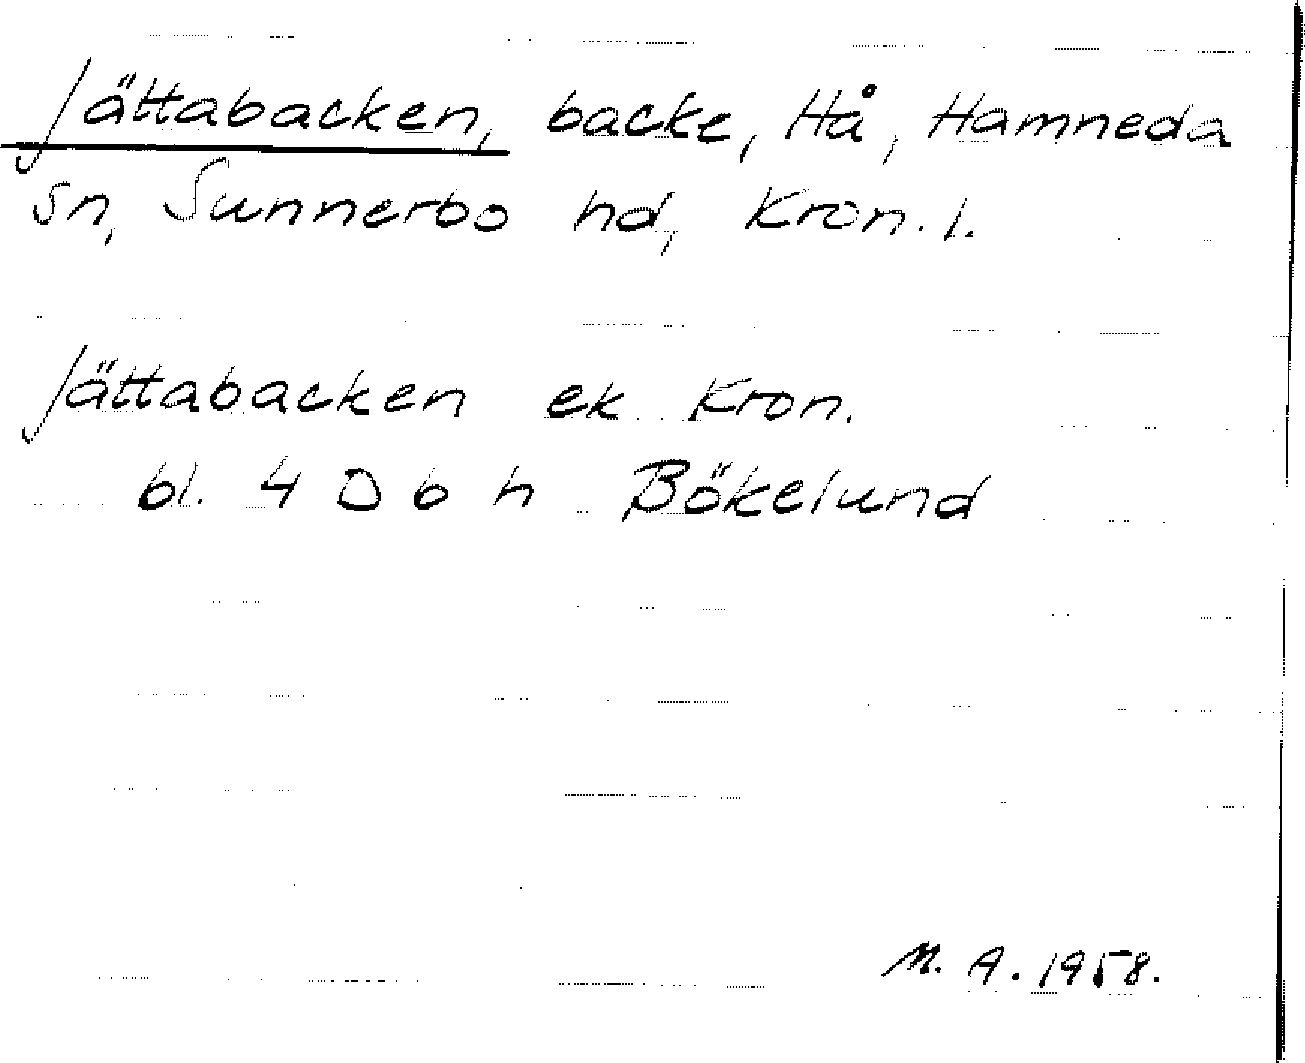 Jättabacken, backe, Hå, Hamneda
sn, Sunnerbo hd, Kron. l.
Jättabacken ek Kron.
bl. 4 D 6 h Bökelund
M. A. 1958.